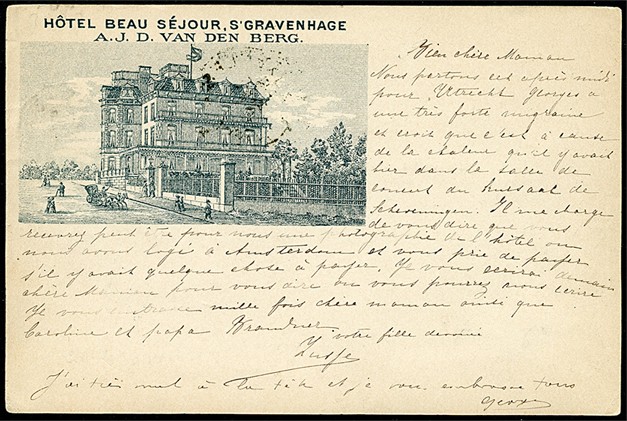 HÔTEL BEAU SÉJOUR, S'GRAVENHAGE
A. J. D. VAN DEN BERG.
Bien chère Maman
Nous partons cet après midi
pour Utrecht Georges a
une très forte migraine
et croit que c'est à cause
de la chaleur qu'il y avait
hier dans la salle de
concert du Kursaal de
Scheveningen. Il me charge
de vous dire que vous
recevrez peut être pour nous une photographie de l'hôtel ou
nous avons logé à Amsterdam et vous prie de payer
s'il y avait quelque chose à payer. Je vous écrirai demain
chère Maman pour vous dire ou vous pourrez nous écrire
Je vous embrasse mille fois chère maman ainsi que
Caroline et papa
votre fille dévouée
J'ai très mal à la tête et je vous embrasse tous